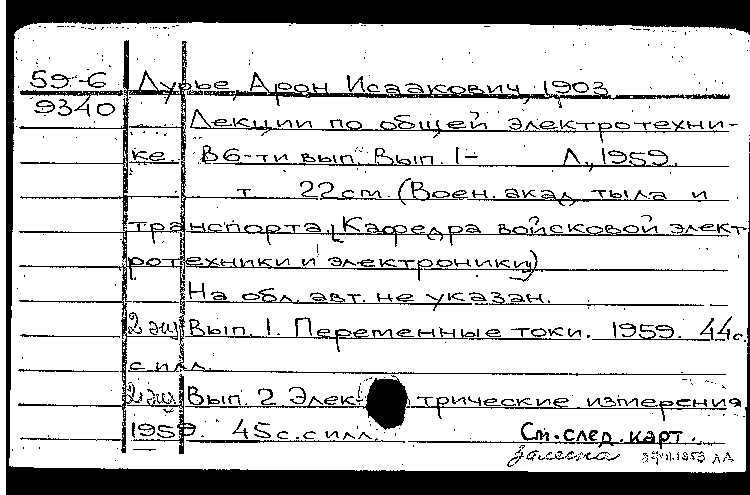 59-6 Лурье, Арон Исаакович, 1903
9340 Лекции по общей электротехни-
ке. В 6-ти вып. Вып. 1- Л., 1959.
т. 22 см. (Воен. акад. тыла и
транспорта. Кафедра войсковой элект-
ротехники и электроники)
На обл. авт. не указан.
2 экз Вып. 1. Переменные токи. 1959. 44 с.
с илл.
2 экз Вып. 2 Элек трические измерения
1959. 45 с. с илл.
См. след. карт.